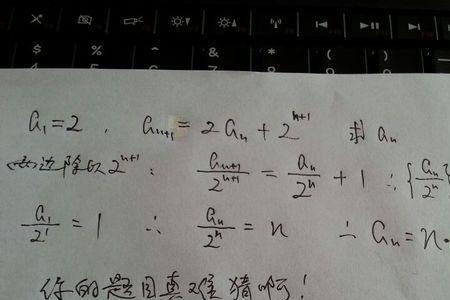 $ % ^ & * (
a₁=2, aₙ₊₁=2aₙ+2ⁿ⁺¹ 求aₙ
两边除以2ⁿ⁺¹: aₙ₊₁/2ⁿ⁺¹ = aₙ/2ⁿ + 1 ∴{aₙ/2ⁿ}
a₁/2¹ = 1 ∴ aₙ/2ⁿ = n ∴ aₙ = n·
你的题目真难猜啊!